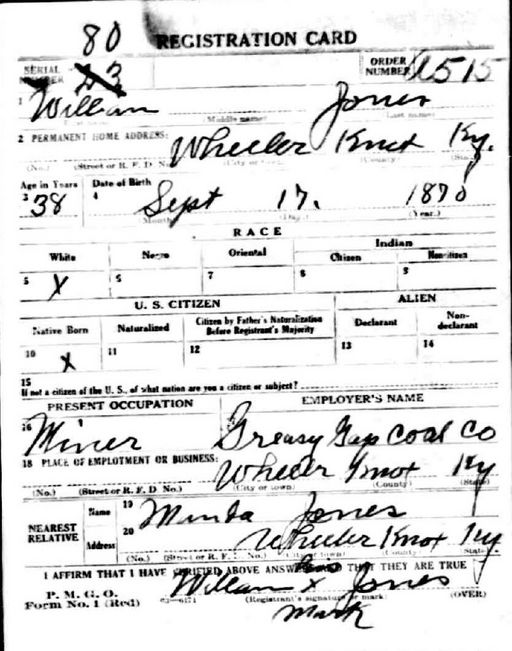 80
REGISTRATION CARD
SERIAL NUMBER 23 ORDER NUMBER A515
1 William Jones
(Middle name) (Last name)
2 PERMANENT HOME ADDRESS: Wheeler Knox Ky.
(No.) (Street or R. F. D. No.) (City or town) (County) (State)
Age in Years Date of Birth
3 38 4 Sept 17. 1870
(Month) (Day) (Year)
RACE
White Negro Oriental Indian
Citizen Noncitizen
5 X 6 7 8 9
U. S. CITIZEN ALIEN
Native Born Naturalized Citizen by Father's Naturalization Before Registrant's Majority Declarant Non-declarant
10 X 11 12 13 14
15
If not a citizen of the U. S., of what nation are you a citizen or subject?
PRESENT OCCUPATION EMPLOYER'S NAME
16 Miner Greasy Gap Coal Co
18 PLACE OF EMPLOYMENT OR BUSINESS: Wheeler Knox Ky
(No.) (Street or R. F. D. No.) (City or town) (County) (State)
NEAREST RELATIVE Name 19 Minda Jones
Address 20 Wheeler Knox Ky
(No.) (Street or R. F. D. No.) (City or town) (County) (State)
I AFFIRM THAT I HAVE VERIFIED ABOVE ANSWERS AND THAT THEY ARE TRUE
P. M. G. O.
Form No. 1 (Red) William his X Jones
(Registrant's signature or mark) (OVER)
mark